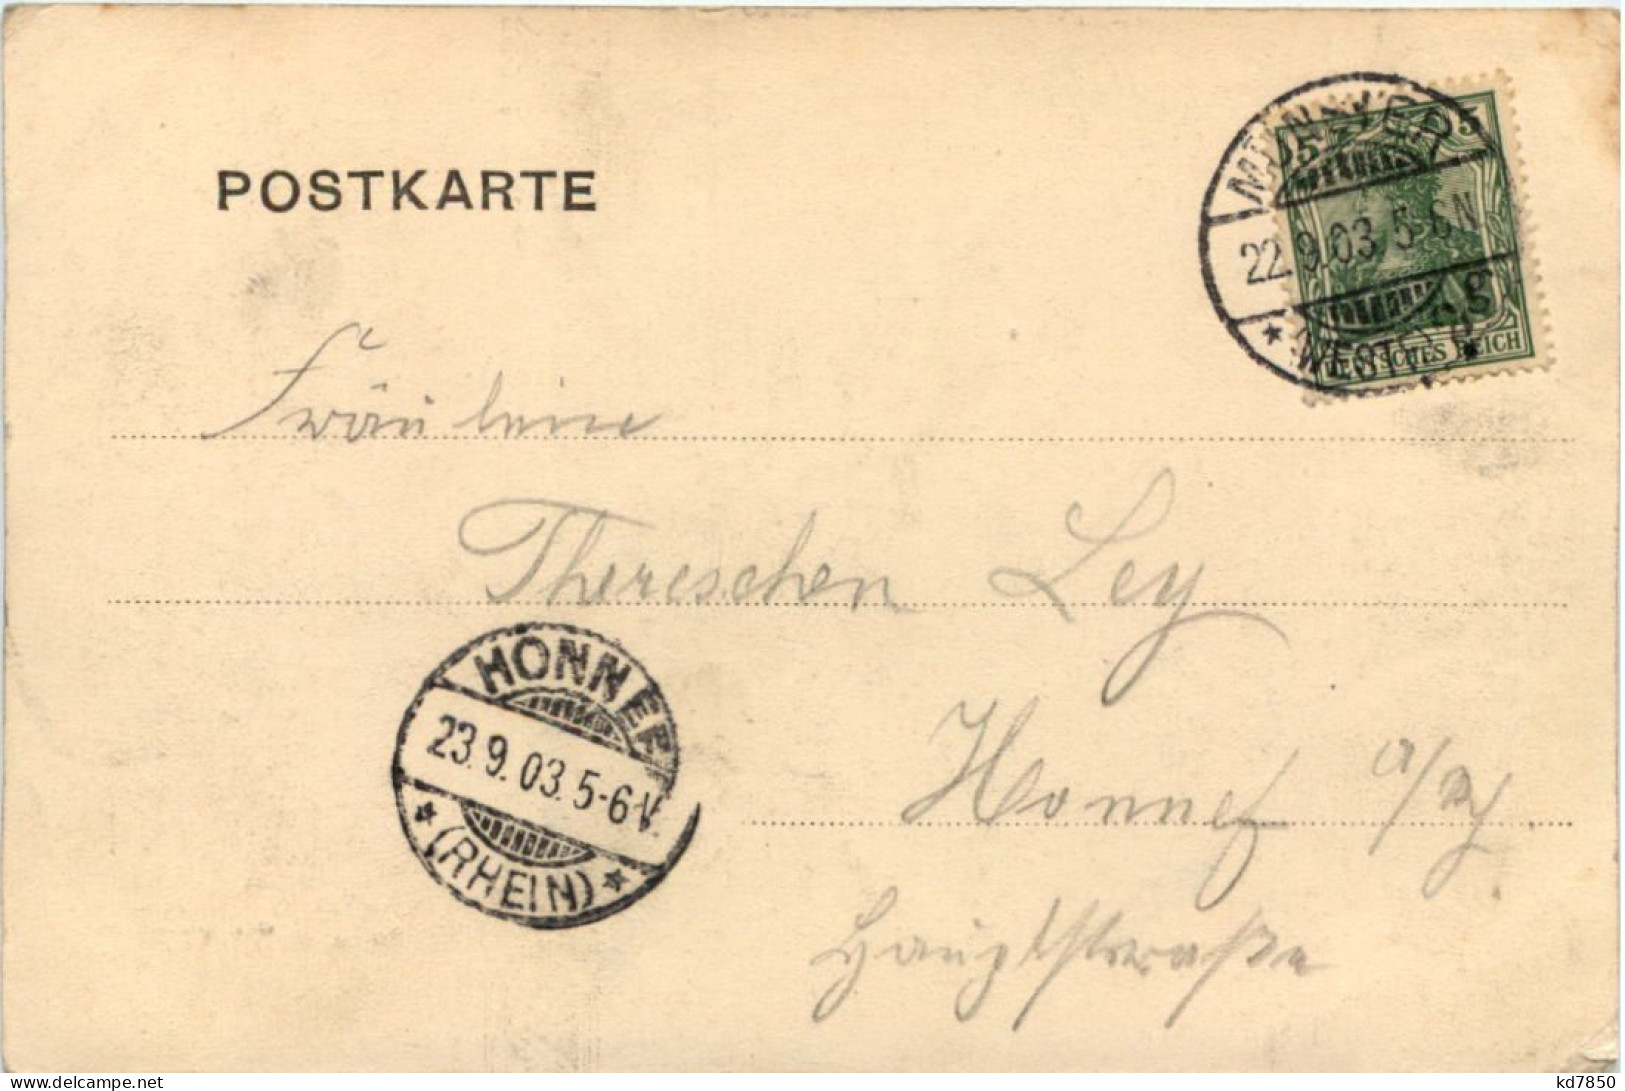 MÜNSTER
5 5
22.9.03 5-6N
* WESTF. *
DEUTSCHES REICH
POSTKARTE
Fräulein
Thereschen Ley
Honnef a/Rh
Hauptstraße
HONNEF
23.9.03. 5-6V.
* (RHEIN) *
delcampe.net
kd7850